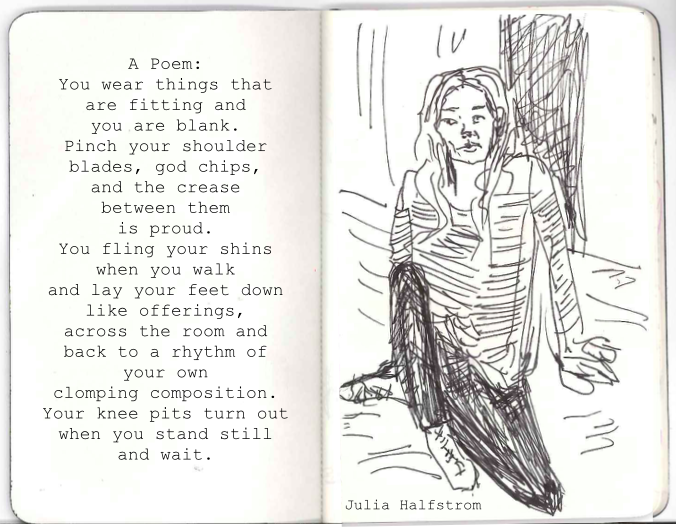 A Poem:
You wear things that
are fitting and
you are blank.
Pinch your shoulder
blades, god chips,
and the crease
between them
is proud.
You fling your shins
when you walk
and lay your feet down
like offerings,
across the room and
back to a rhythm of
your own
clomping composition.
Your knee pits turn out
when you stand still
and wait.
Julia Halfstrom